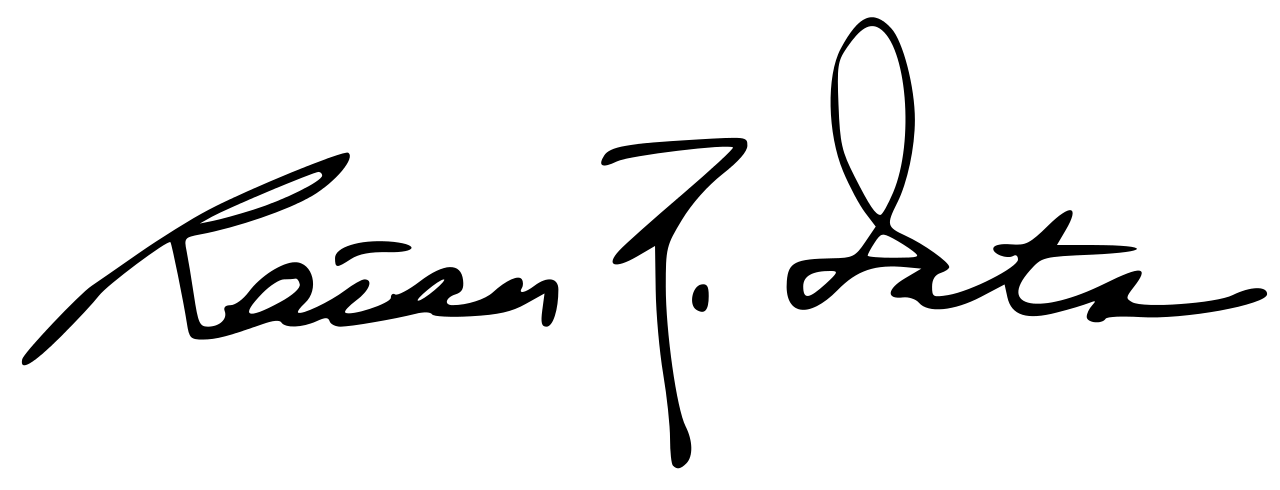 Ratan Tata